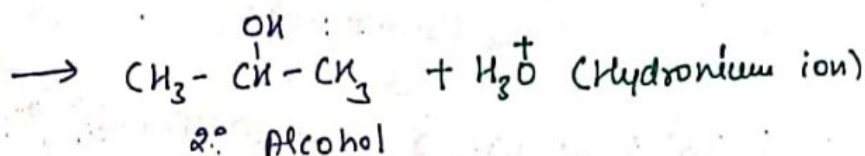 OH
→ CH₃ - CH - CH₃ + H₃O⁺ (Hydronium ion)
2° Alcohol